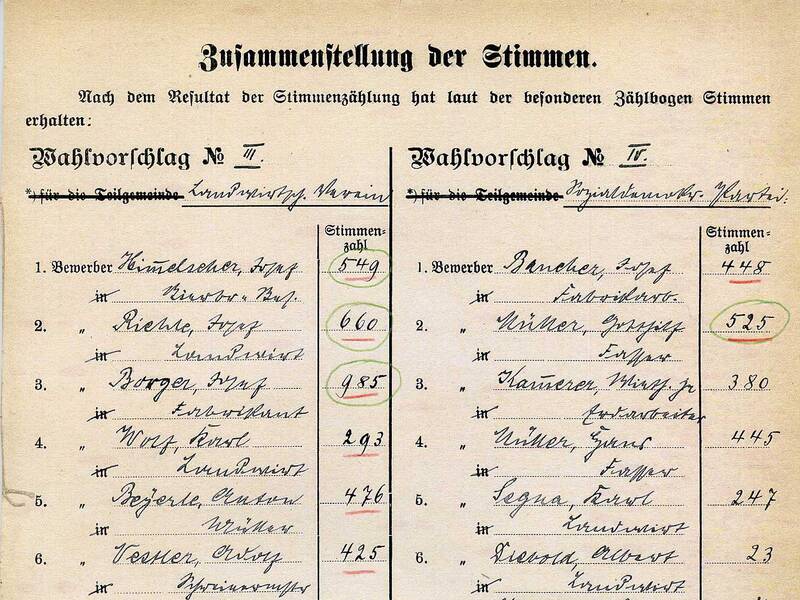 Zusammenstellung der Stimmen.
Nach dem Resultat der Stimmenzählung hat laut der besonderen Zählbogen Stimmen
erhalten:
Wahlvorschlag No III.
*) für die Teilgemeinde Landwirtsch. Verein
Stimmen-
zahl
1. Bewerber Him̅elscher, Josef 549
in
2. „ Riehle, Josef 660
in Landwirt
3. „ Borger, Josef 985
in Fabrikant
4. „ Wolf, Karl 293
in Landwirt
5. „ Beyerle, Anton 476
in Müller
6. „ Adolf 425
in Schreinermstr
Wahlvorschlag No IV.
*) für die Teilgemeinde Sozialdemokr. Partei.
Stimmen-
zahl
1. Bewerber Bancher, Josef 448
in Fabrikarb.
2. „ Müller, Gotthilf 525
in Fasser
3. „ Kam̅erer, 380
in Erdarbeiter
4. „ Müller, Hans 445
in Fasser
5. „ Segna, Karl 247
in Landwirt
6. „ Diebold, Albert 23
in Landwirt